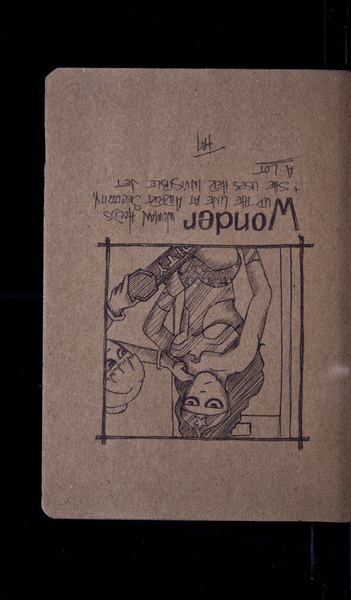 Wonder WOMAN HOLDS
UP THE LINE AT AIRPORT SECURITY.
+ SHE USES HER INVISIBLE JET
A LOT